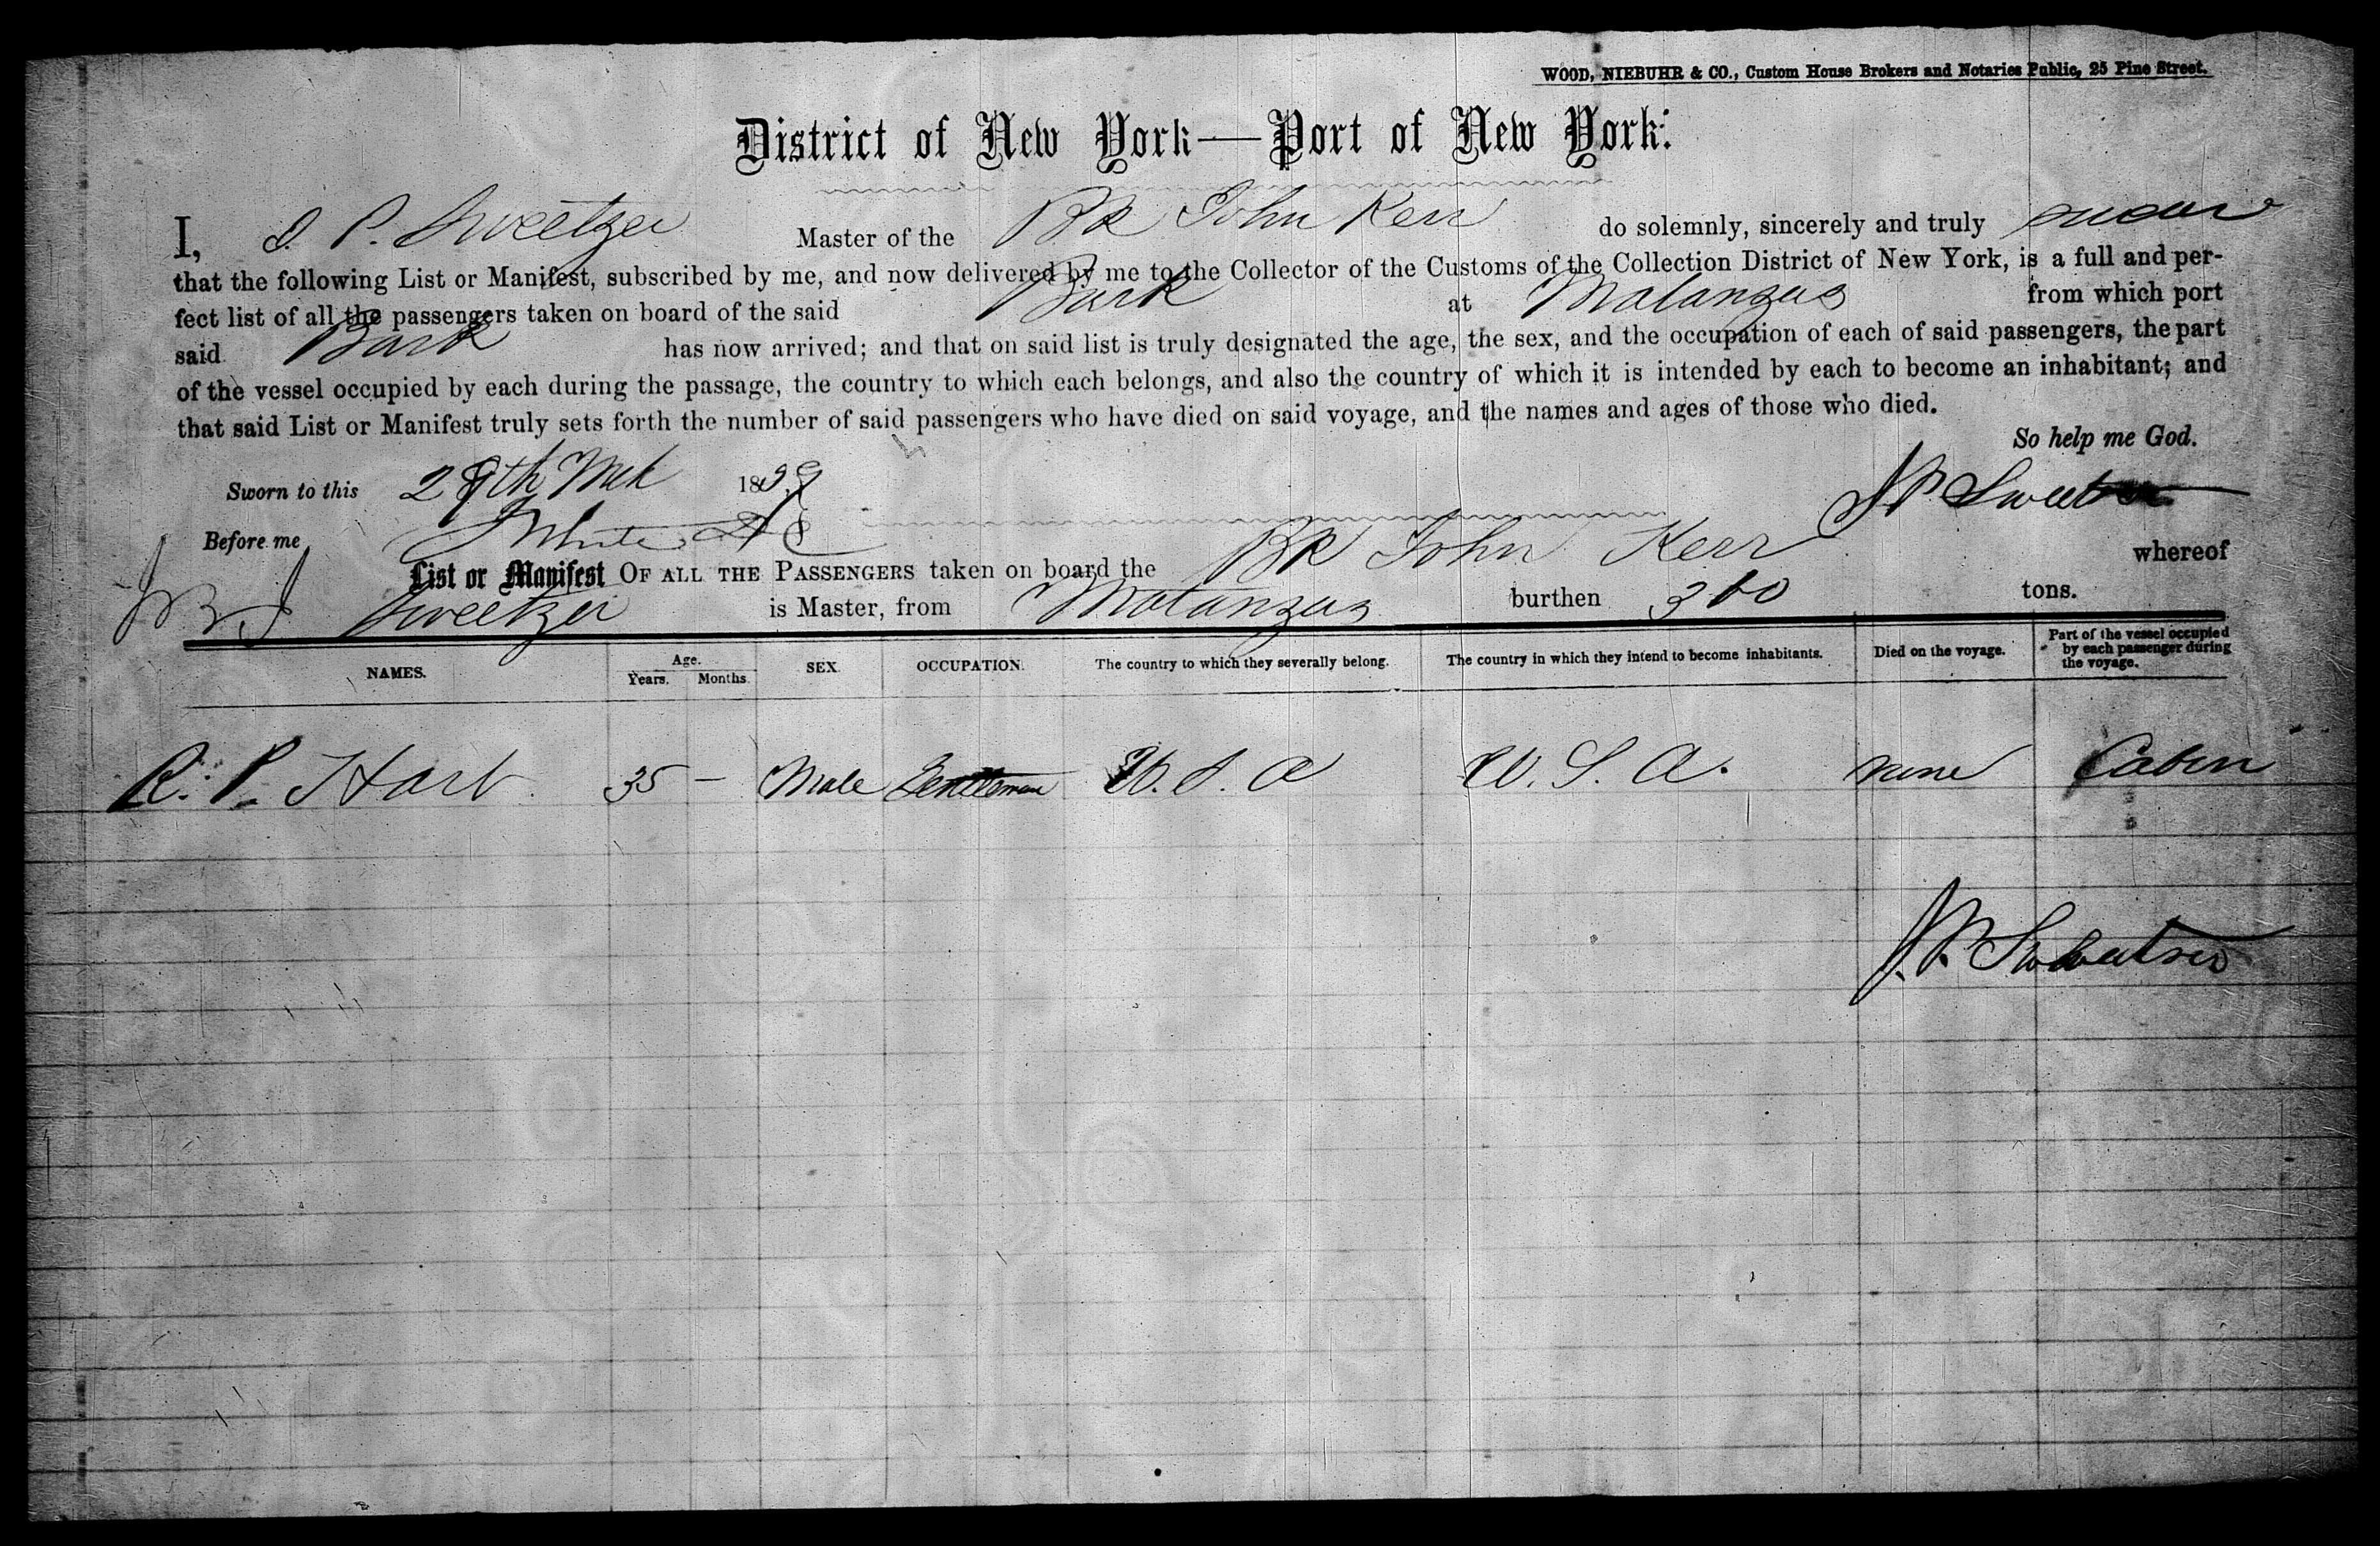 WOOD, NIEBUHR & CO., Custom House Brokers and Notaries Public, 25 Pine Street.
District of New York—Port of New York:
I, J. P. Sweetzer Master of the Bk John Kerr do solemnly, sincerely and truly swear
that the following List or Manifest, subscribed by me, and now delivered by me to the Collector of the Customs of the Collection District of New York, is a full and per-
fect list of all the passengers taken on board of the said Bark at Matanzas from which port
said Bark has now arrived; and that on said list is truly designated the age, the sex, and the occupation of each of said passengers, the part
of the vessel occupied by each during the passage, the country to which each belongs, and also the country of which it is intended by each to become an inhabitant; and
that said List or Manifest truly sets forth the number of said passengers who have died on said voyage, and the names and ages of those who died.
So help me God.
Sworn to this 28th Mch 18 J P Sweetser
Before me White
List or Manifest OF ALL THE PASSENGERS taken on board the Bk John Kerr whereof
Sweetzer is Master, from Matanzas burthen 310 tons.
NAMES. Age. Years. Months. SEX. OCCUPATION. The country to which they severally belong. The country in which they intend to become inhabitants. Died on the voyage. Part of the vessel occupied by each passenger during the voyage.
R. P. Hart 35 — Male Gentleman U. S. A U. S. A. none Cabin
J. P. Sweetser